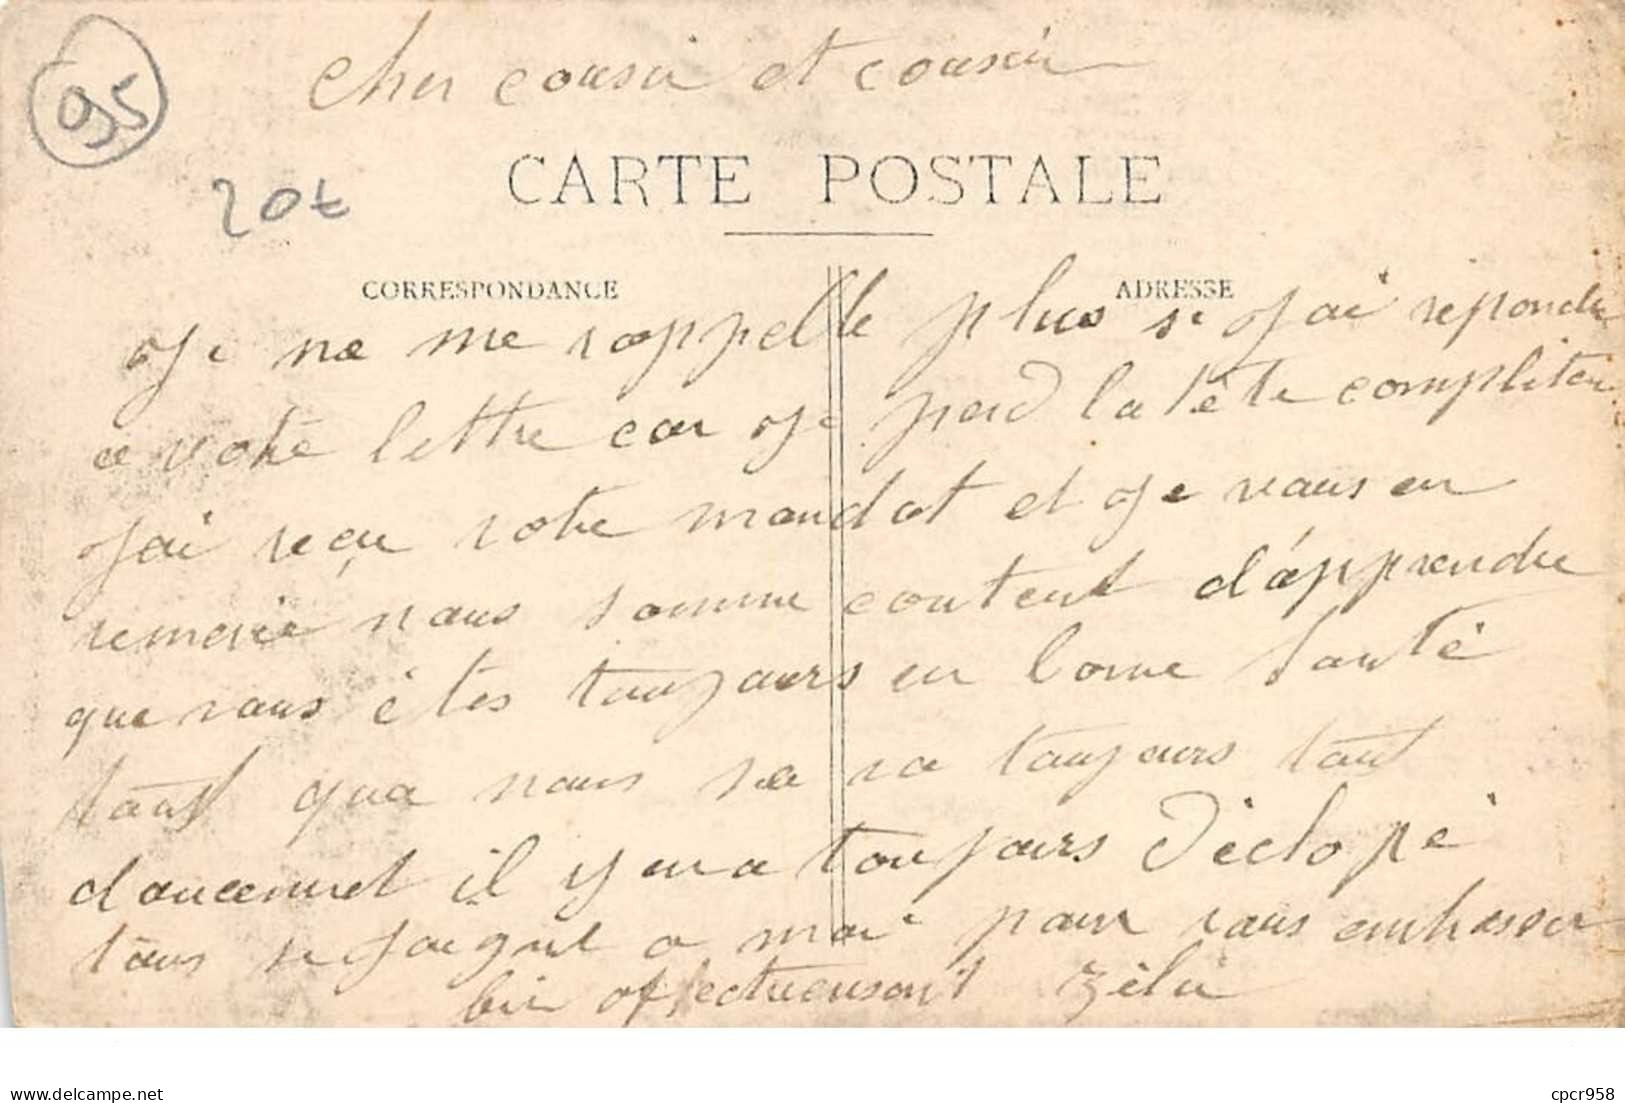 95
cher cousin et cousin
20€
CARTE POSTALE
CORRESPONDANCE
ADRESSE
Je ne me rappelle plus si J'ai repondu
a votre lettre car Je perd la tête
J'ai reçu votre mandat et Je vous en
remercie nous somme content d'apprendre
que vous êtes toujours en bonne Santé
tant qua nous sa va toujours tout
doucement il y en a toujours d'éclopé
tous se joigne a moi pour vous embrasser
bien affectueusement Zélie
delcampe.net
cpcr958